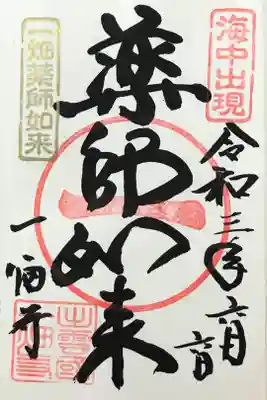 海中出現
令和三年六月六日
薬師如来
一畑薬師如来
一畑寺
出雲國一畑寺